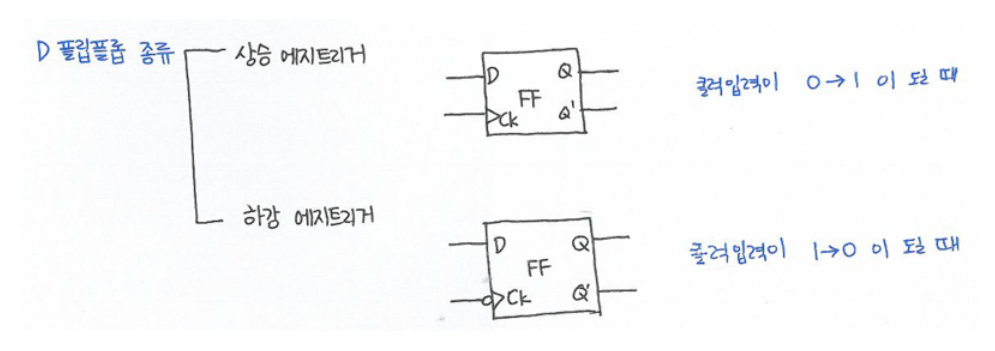 D 플립플롭 종류
상승 에지트리거
D Q
FF
Ck Q'
클럭입력이 0→1 이 될 때
하강 에지트리거
D Q
FF
Ck Q'
클럭입력이 1→0 이 될 때